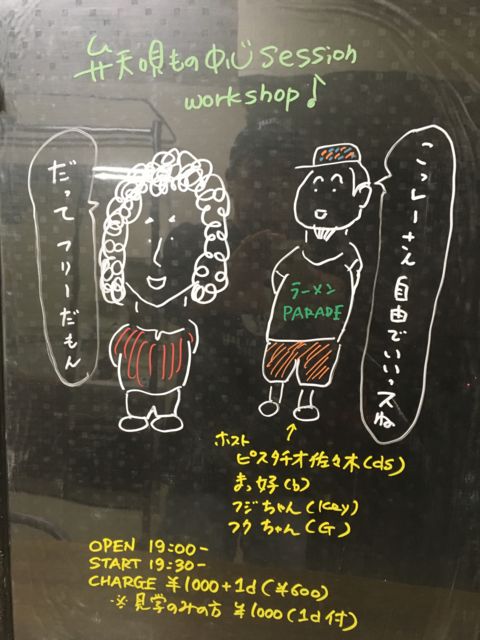 弁天唄もの中心session
workshop♪
こっしーさん自由でいいっスね
だってフリーだもん
ラーメン
PARADE
ホスト
ピスタチオ佐々木(ds)
まっ好(b)
フジちゃん(key)
フクちゃん(G)
OPEN 19:00-
START 19:30-
CHARGE ¥1000+1d(¥600)
※見学のみの方 ¥1000(1d付)